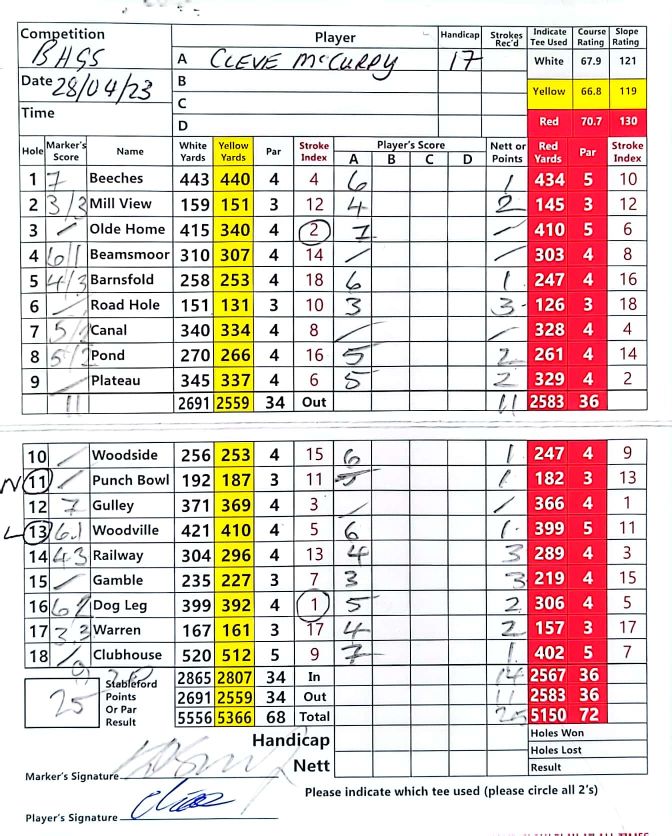 Competition Player Handicap Strokes Rec'd Indicate Tee Used Course Rating Slope Rating
BHGS A CLEVE McCURRY 17 White 67.9 121
Date 28/04/23 B Yellow 66.8 119
Time C
D Red 70.7 130
Hole Marker's Score Name White Yards Yellow Yards Par Stroke Index Player's Score A B C D Nett or Points Red Yards Par Stroke Index
1 7 Beeches 443 440 4 4 6 1 434 5 10
2 3/3 Mill View 159 151 3 12 4 2 145 3 12
3 / Olde Home 415 340 4 2 7 / 410 5 6
4 6/1 Beamsmoor 310 307 4 14 / / 303 4 8
5 4/3 Barnsfold 258 253 4 18 6 1 247 4 16
6 / Road Hole 151 131 3 10 3 3 126 3 18
7 5/2 Canal 340 334 4 8 / / 328 4 4
8 5/2 Pond 270 266 4 16 5 2 261 4 14
9 / Plateau 345 337 4 6 5 2 329 4 2
11 2691 2559 34 Out 11 2583 36
10 / Woodside 256 253 4 15 6 1 247 4 9
N 11 / Punch Bowl 192 187 3 11 5 1 182 3 13
12 7 Gulley 371 369 4 3 / / 366 4 1
L 13 6.1 Woodville 421 410 4 5 6 1. 399 5 11
14 4 3 Railway 304 296 4 13 4 3 289 4 3
15 / Gamble 235 227 3 7 3 3 219 4 15
16 6/ Dog Leg 399 392 4 1 5 2 306 4 5
17 3 3 Warren 167 161 3 17 4 2 157 3 17
18 / Clubhouse 520 512 5 9 7 1. 402 5 7
25 Stableford Points Or Par Result 2865 2807 34 In 14 2567 36
2691 2559 34 Out 11 2583 36
5556 5366 68 Total 25 5150 72
Handicap Holes Won
Holes Lost
Nett Result
Marker's Signature
Please indicate which tee used (please circle all 2's)
Player's Signature